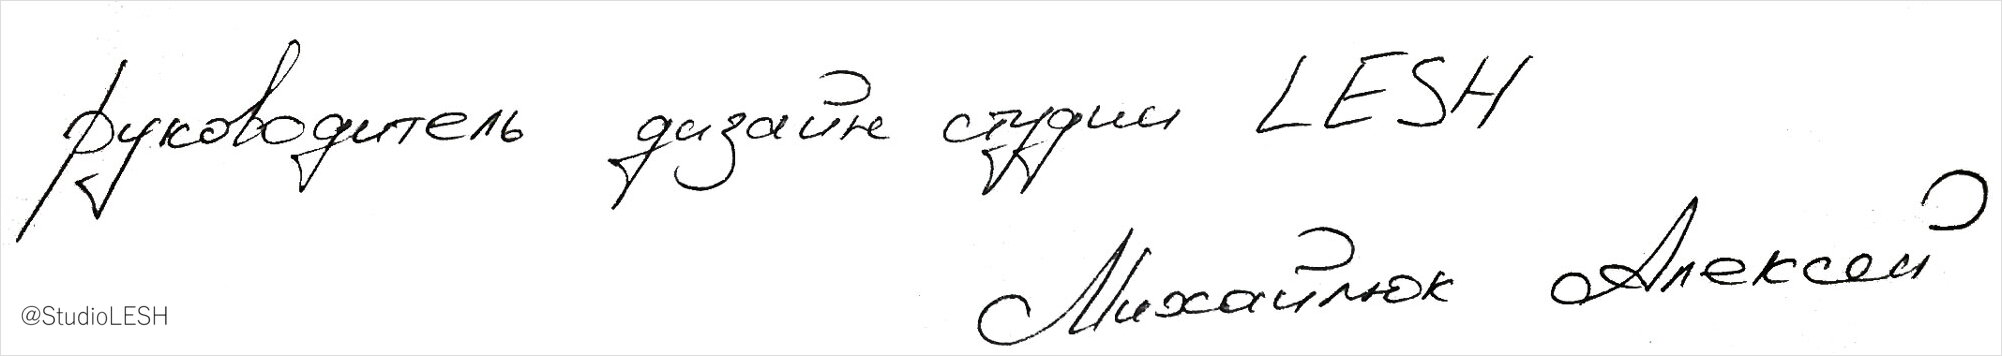 руководитель дизайн студии LESH
Михайлюк Алексей
@StudioLESH